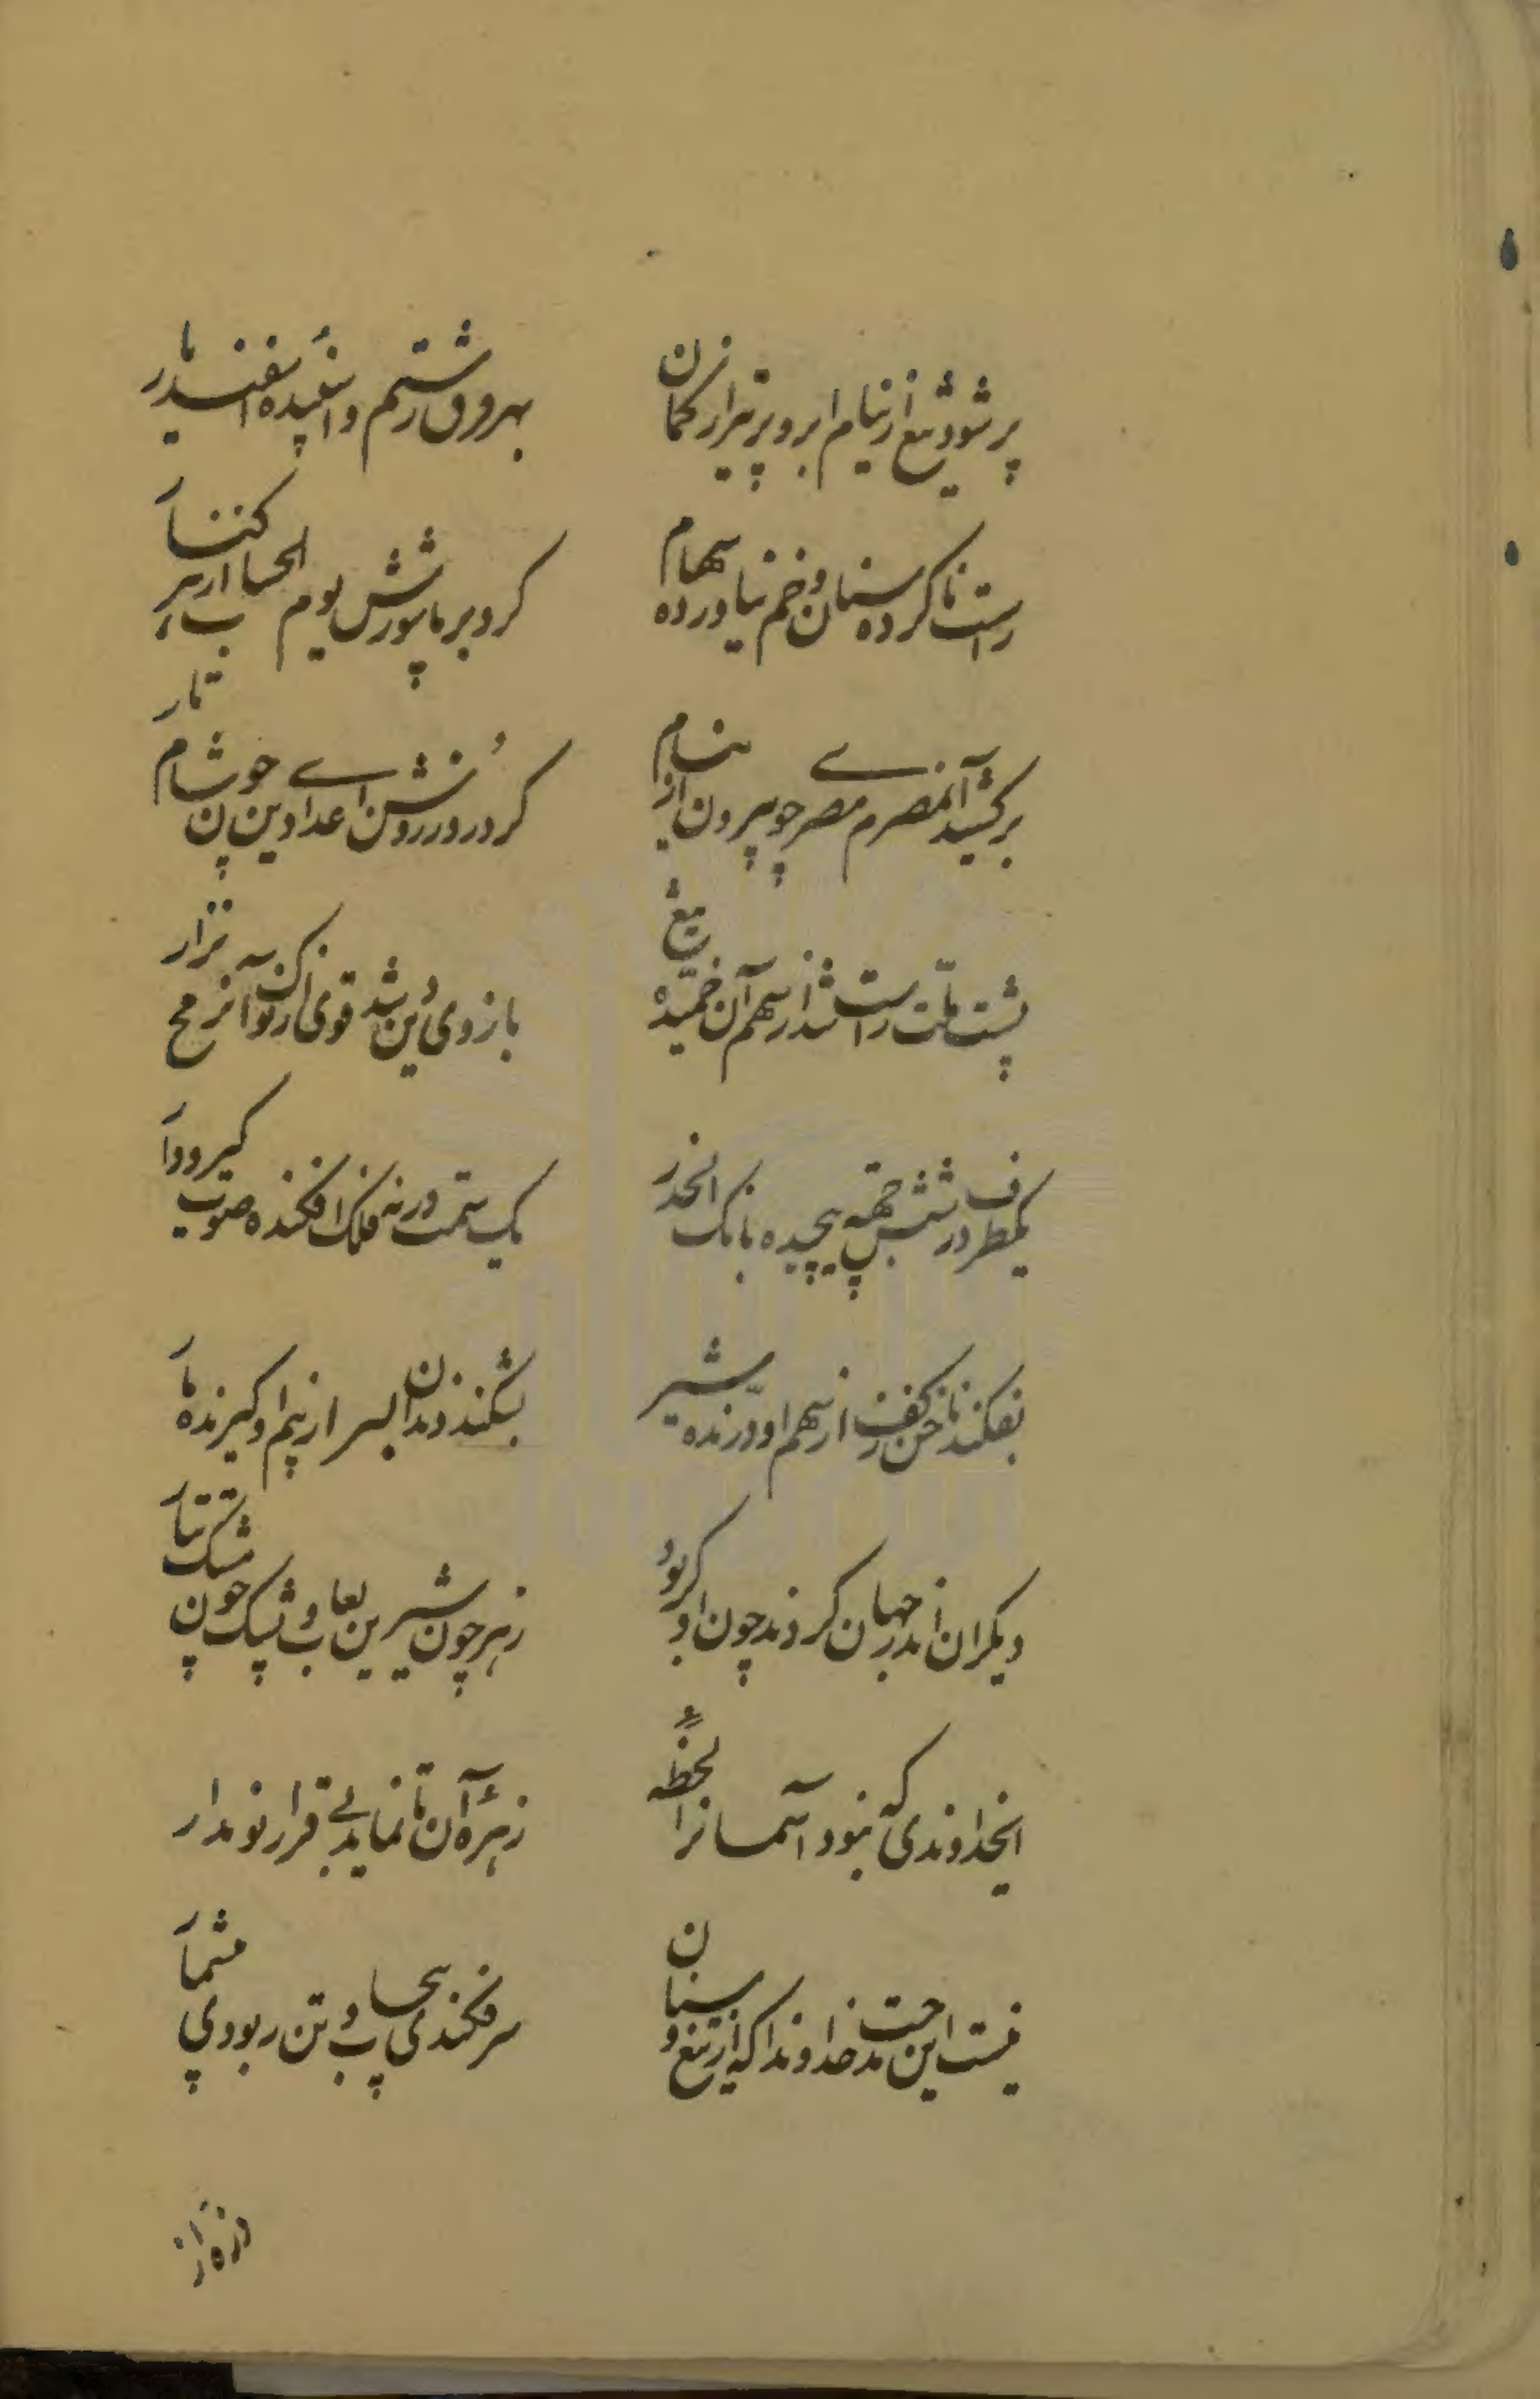 پر شود تیغ از نیام ابرو پر تیر از کمان
بهر فرق رستم و اسفیده اسفندیار
راست ناکرده سنان و خم نیاورده سهام
کرد بر ما شورش یوم الحساب
برکشید آن مصری چو بیرون از نیام
کرد روز روشن اعدا دین چون شام تار
پشت ملت راست شد از سهم آن خمیده تیغ
بازوی دین شد قوی از نوک آن رمح نزار
یکطرف در شش جهه پیچیده بانک الحذر
یک سمت در نه فلک افکنده صوت گیرودار
بفکند ناخن ز کف از سهم او درنده شیر
بشکند دندان بسر از بیم او گیرنده مار
دیگران اندر جهان کردند چون او گر بود
زهر چون شیرین لعاب و پشک چون مشک تتار
ایخداوندی که نبود آسمانرا لحظهٔ
زهرهٔ آن تا نماید بی قرار تو مدار
نیست این مدحت خداوندا که از تیغ و سنان
سر فکندی بیحساب و تن ربودی بیشمار